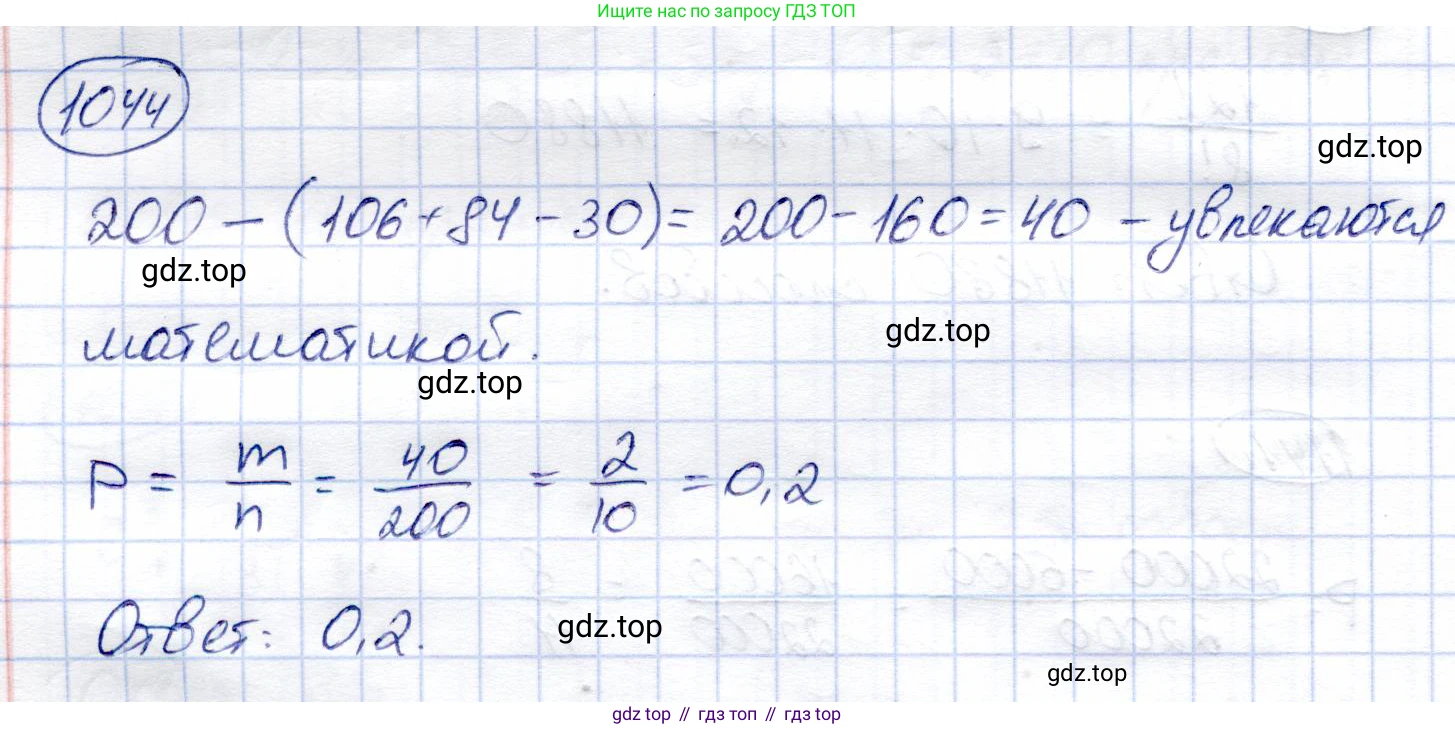 Ищите нас по запросу ГДЗ ТОП
1044
gdz.top
200 - (106 + 84 - 30) = 200 - 160 = 40 - увлекаются
gdz.top
математикой.
gdz.top
gdz.top
P = m/n = 40/200 = 2/10 = 0,2
Ответ: 0,2.
gdz.top
gdz.top
gdz top // гдз топ // гдз top